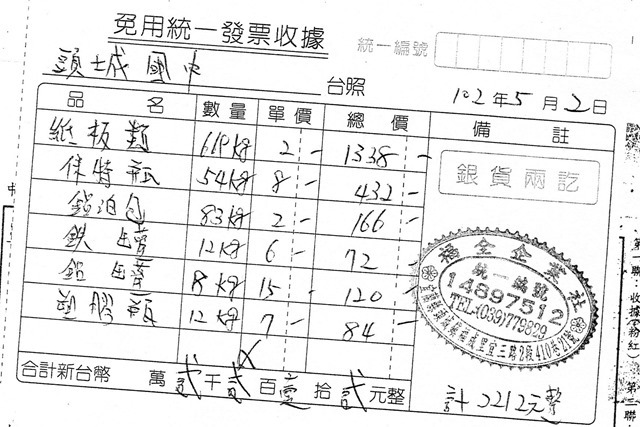 免用統一發票收據
統一編號
頭城國中 台照
102年5月2日
品名 數量 單價 總價 備註
紙板類 619kg 2- 1338-
保特瓶 54kg 8- 432-
鋁泊包 83kg 2- 166-
鉄罐 12kg 6- 72-
鋁罐 8kg 15- 120-
塑膠瓶 12kg 7- 84-
銀貨兩訖
福全企業社
統一編號
14897512
TEL:(039)779829
合計新台幣 萬貳千貳百壹拾貳元整
計2212元整
第一聯：收據(粉紅)
第二聯